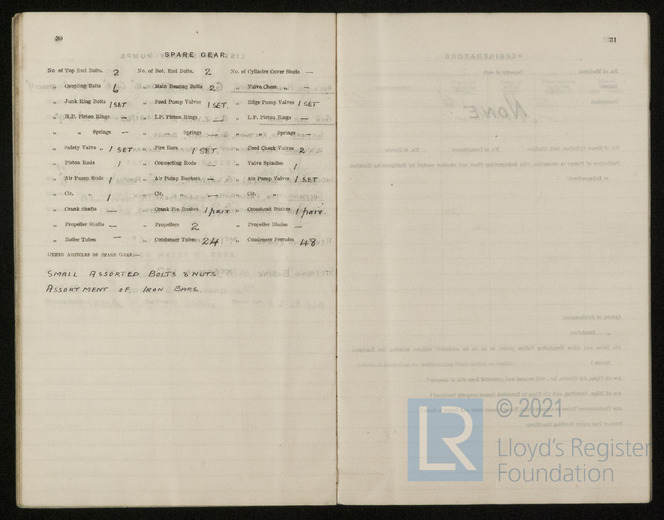 30
SPARE GEAR.
No. of Top End Bolts. 2 No. of Bot. End Bolts. 2 No. of Cylinder Cover Studs —
„ Coupling Bolts 6 „ Main Bearing Bolts 2 „ Valve Chest „ —
„ Junk Ring Bolts 1 SET „ Feed Pump Valves 1 SET „ Bilge Pump Valves 1 SET
„ H.P. Piston Rings — „ I.P. Piston Rings — „ L.P. Piston Rings —
„ „ Springs — „ „ Springs — „ „ Springs —
„ Safety Valve „ 1 SET „ Fire Bars 1 SET „ Feed Check Valves 2
„ Piston Rods 1 „ Connecting Rods — „ Valve Spindles 1
„ Air Pump Rods 1 „ Air Pump Buckets — „ Air Pump Valves 1 SET
„ Cir. „ 1 „ Cir. „ — „ Cir. „ —
„ Crank Shafts — „ Crank Pin Bushes 1 pair „ Crosshead Bushes 1 pair
„ Propeller Shafts — „ Propellers 2 „ Propeller Blades —
„ Boiler Tubes — „ Condenser Tubes 24 „ Condenser Ferrules 48
OTHER ARTICLES OF SPARE GEAR:—
SMALL ASSORTED BOLTS & NUTS
ASSORTMENT OF IRON BARS
31
© 2021
LR
Lloyd's Register
Foundation